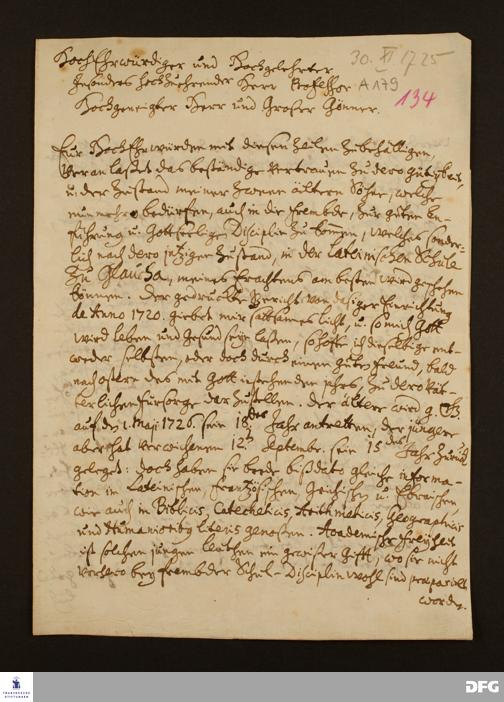 HochEhrwürdiger und Hochgelehrter 30. XI 1725
Insonders hochzuEhrender Herr Professor A 179
Hochgeneigter Herr und Großer Gönner. 134
Eur HochEhrwürden mit diesen Zeilen zubehälligen,
Veranlaßet das beständige Vertrauen zu dero gütigkeit,
u. der Zustand meiner zween ältern Söhne, welche
nunmehro bedürfen, auch in die frembde, zur guten An-
führung u. Gottseeliger Disciplin zu kom̄en, welches sonder-
lich nach dero jetziger Zustand, in der Lateinischen Schule
zu Glaucha, meines Erachtens am besten wird geschehen
können. Der gedruckte Bericht von dasiger Einrichtung
de Anno 1720. giebet mir sattsames Licht, u. so mich Gott
wird leben und gesund seyn laßen, so hoffe ich dieselbige ent-
weder selbsten, oder doch durch einen guten freund, bald
nach ostern des mit Gott instehenden Jahrs, zu dero Vät-
terlichen fürsorge darzustellen. Der ältere wird g. G.
auf den 1. Maji 1726. sein 18des Jahr antretten, der jüngere
aber hat verwichenen 12. Septembr. sein 15des Jahr zurück
geleget: doch haben sie beede biß dato gleiche informa-
tion in Lateinischen, französischen, Grichischen u. Ebraischen,
wie auch in Biblicis, Catecheticis, Arithmeticis, Geographicis
und Humanioribus literis genossen. Academische freyheit
ist solchen jungen leuthen ein gewisser Gifft, wo sie nicht
vorhero bey frembder Schul-Disciplin wohl sind praeparirt
worden.
FRANCKESCHE
STIFTUNGEN
DFG